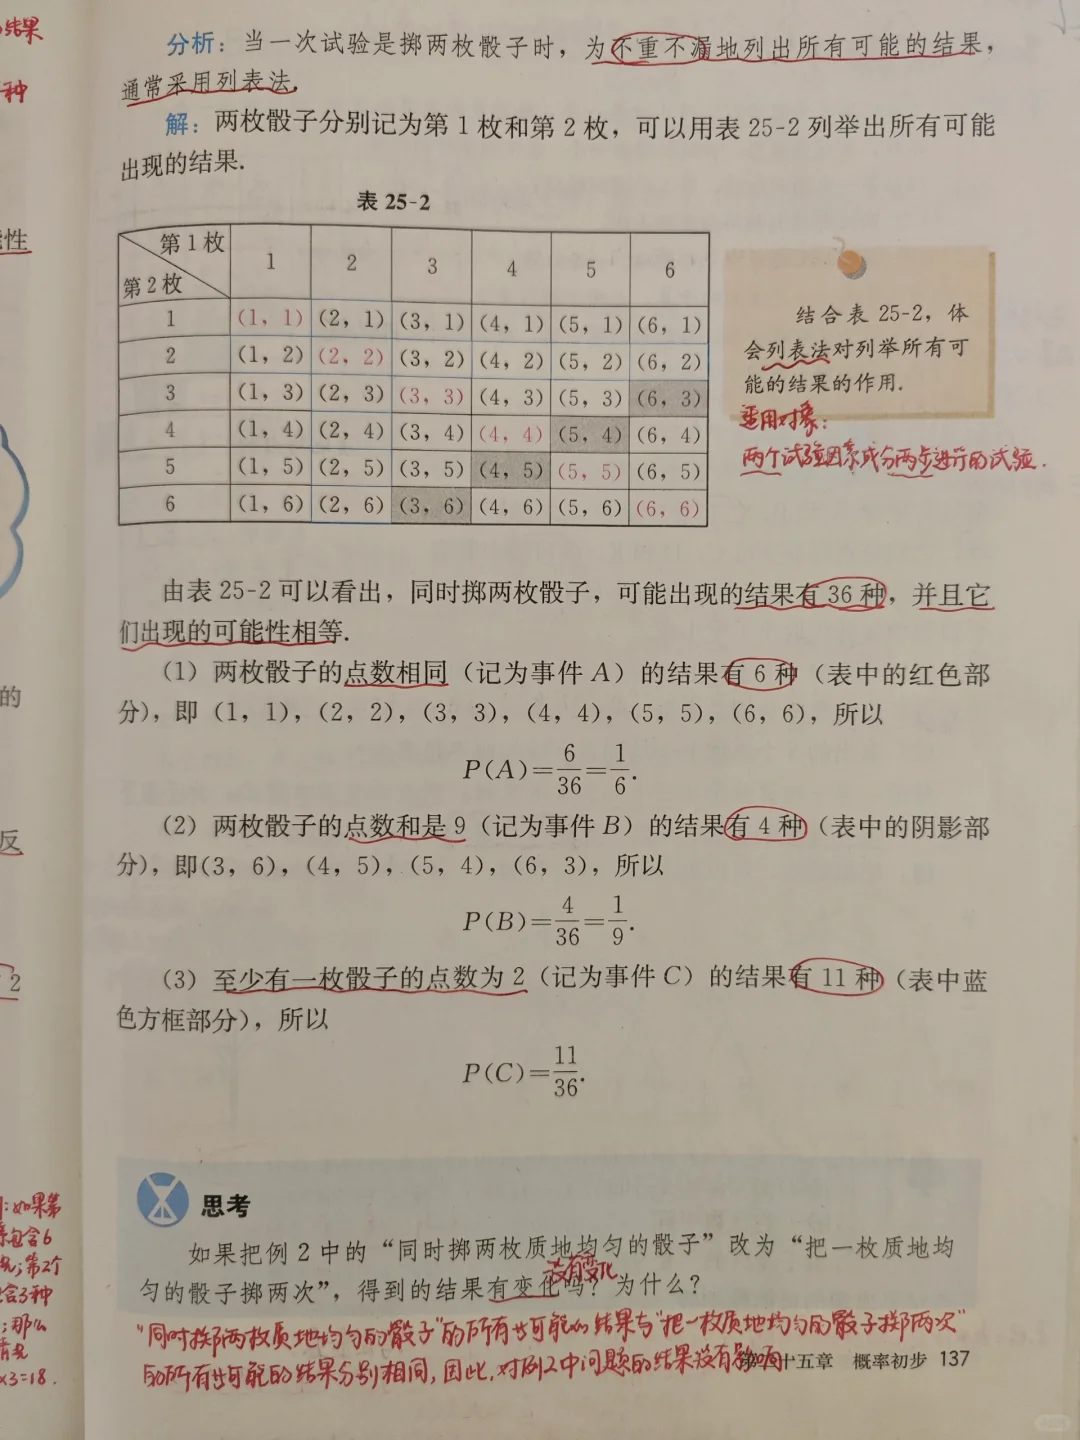 结果
种
性
的
反
2
分析：当一次试验是掷两枚骰子时，为不重不漏地列出所有可能的结果，
通常采用列表法.
解：两枚骰子分别记为第 1 枚和第 2 枚，可以用表 25-2 列举出所有可能
出现的结果.
表 25-2
第 1 枚 1 2 3 4 5 6
第 2 枚
1 (1，1) (2，1) (3，1) (4，1) (5，1) (6，1)
2 (1，2) (2，2) (3，2) (4，2) (5，2) (6，2)
3 (1，3) (2，3) (3，3) (4，3) (5，3) (6，3)
4 (1，4) (2，4) (3，4) (4，4) (5，4) (6，4)
5 (1，5) (2，5) (3，5) (4，5) (5，5) (6，5)
6 (1，6) (2，6) (3，6) (4，6) (5，6) (6，6)
结合表 25-2，体
会列表法对列举所有可
能的结果的作用.
适用对象：
两个试验因素或分两步进行的试验.
由表 25-2 可以看出，同时掷两枚骰子，可能出现的结果有 36 种，并且它
们出现的可能性相等.
（1）两枚骰子的点数相同（记为事件 A）的结果有 6 种（表中的红色部
分），即（1，1），（2，2），（3，3），（4，4），（5，5），（6，6），所以
P(A)=6/36=1/6.
（2）两枚骰子的点数和是 9（记为事件 B）的结果有 4 种（表中的阴影部
分），即(3，6)，(4，5)，(5，4)，(6，3)，所以
P(B)=4/36=1/9.
（3）至少有一枚骰子的点数为 2（记为事件 C）的结果有 11 种（表中蓝
色方框部分），所以
P(C)=11/36.
思考
如果把例 2 中的“同时掷两枚质地均匀的骰子”改为“把一枚质地均
匀的骰子掷两次”，得到的结果有变化吗？为什么？
没有变化
“同时掷两枚质地均匀的骰子”的所有可能的结果与“把一枚质地均匀的骰子掷两次”
的所有可能的结果分别相同，因此，对例2中问题的结果没有影响
十五章 概率初步 137
：如果第
包含6
；第2个
含3种
；那么
×3=18.